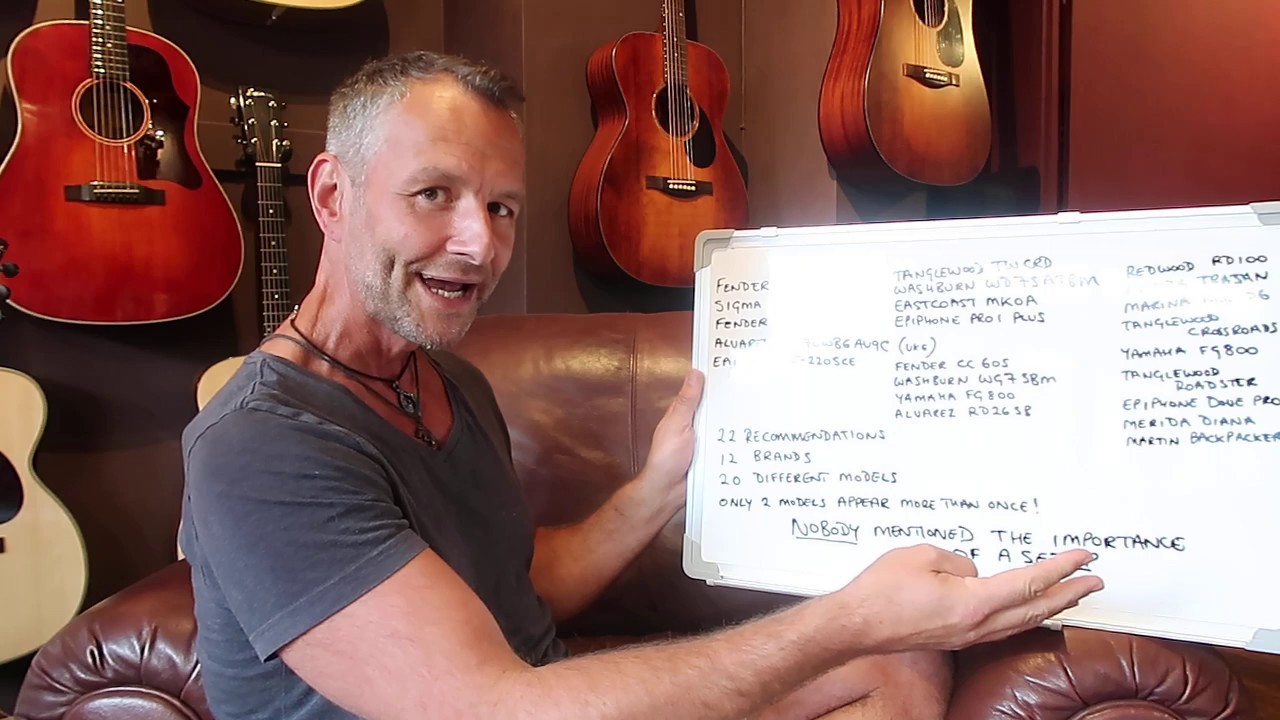 FENDER
SIGMA
FENDER
220SCE
TANGLEWOOD TWCRD
WASHBURN
EASTCOAST MK0A
EPIPHONE PRO1 PLUS
FENDER CC 60S
WASHBURN WG7SBM
YAMAHA FG800
ALVAREZ RD26SB
REDWOOD RD100
TROJAN
MARINA
TANGLEWOOD
CROSSROADS
YAMAHA FG800
TANGLEWOOD
ROADSTER
EPIPHONE DOVE PRO
MERIDA DIANA
MARTIN BACKPACKER
22 RECOMMENDATIONS
12 BRANDS
20 DIFFERENT MODELS
ONLY 2 MODELS APPEAR MORE THAN ONCE!
NOBODY MENTIONED THE IMPORTANCE
OF A